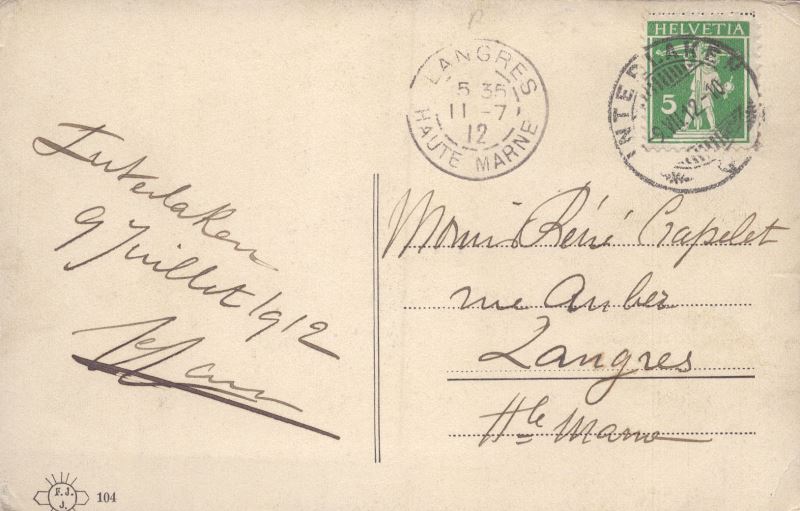 LANGRES
5 35
11 -7
12
HAUTE MARNE
HELVETIA
5
INTERLAKEN
9.VII.12.-10
Interlaken
9 Juillet 1912
René Crapelet
rue Auber
Langres
Hte Marne
F. J.
J.
104